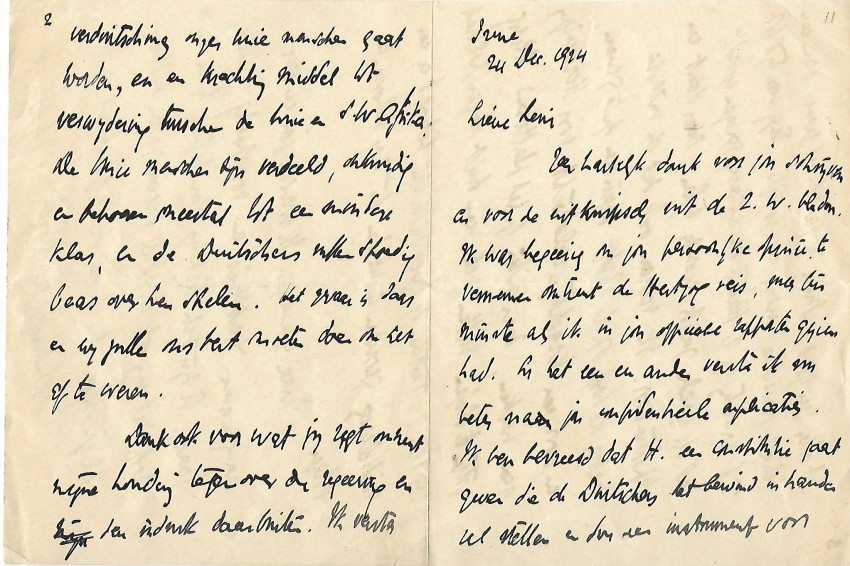 11
Irene
24 Dec. 1924
Lieve
Zeer hartelijk dank voor jou schrijven
en voor de uitknipsels uit de Z. W. bladen.
Ik was begeerig om jou persoonlijke opinie te
vernemen omtrent de Hertzog reis, meer ten
minste als ik in jou officieele rapporten gezien
had. En het een en ander versta ik nu
beter jou confidentieele explicaties.
Ik ben bevreesd dat H. een constitutie gaat
geven die de Duitschers het bewind in handen
zal stellen en dus een instrument voor
2
verduitsching onzer Unie menschen gaat
worden, en een krachtig middel tot
verwijdering tusschen de Unie en S.W. Afrika.
De Unie menschen zijn verdeeld, onkundig
en behooren meestal tot een mindere
klas, en de Duitschers zullen spoedig
baas over hen spelen. Het gevaar is daar
en wij zullen ons best moeten doen om het
af te weren.
Dank ook voor wat jij zegt omtrent
mijne houding tegenover de regeering en
den indruk daarbuiten. Ik versta